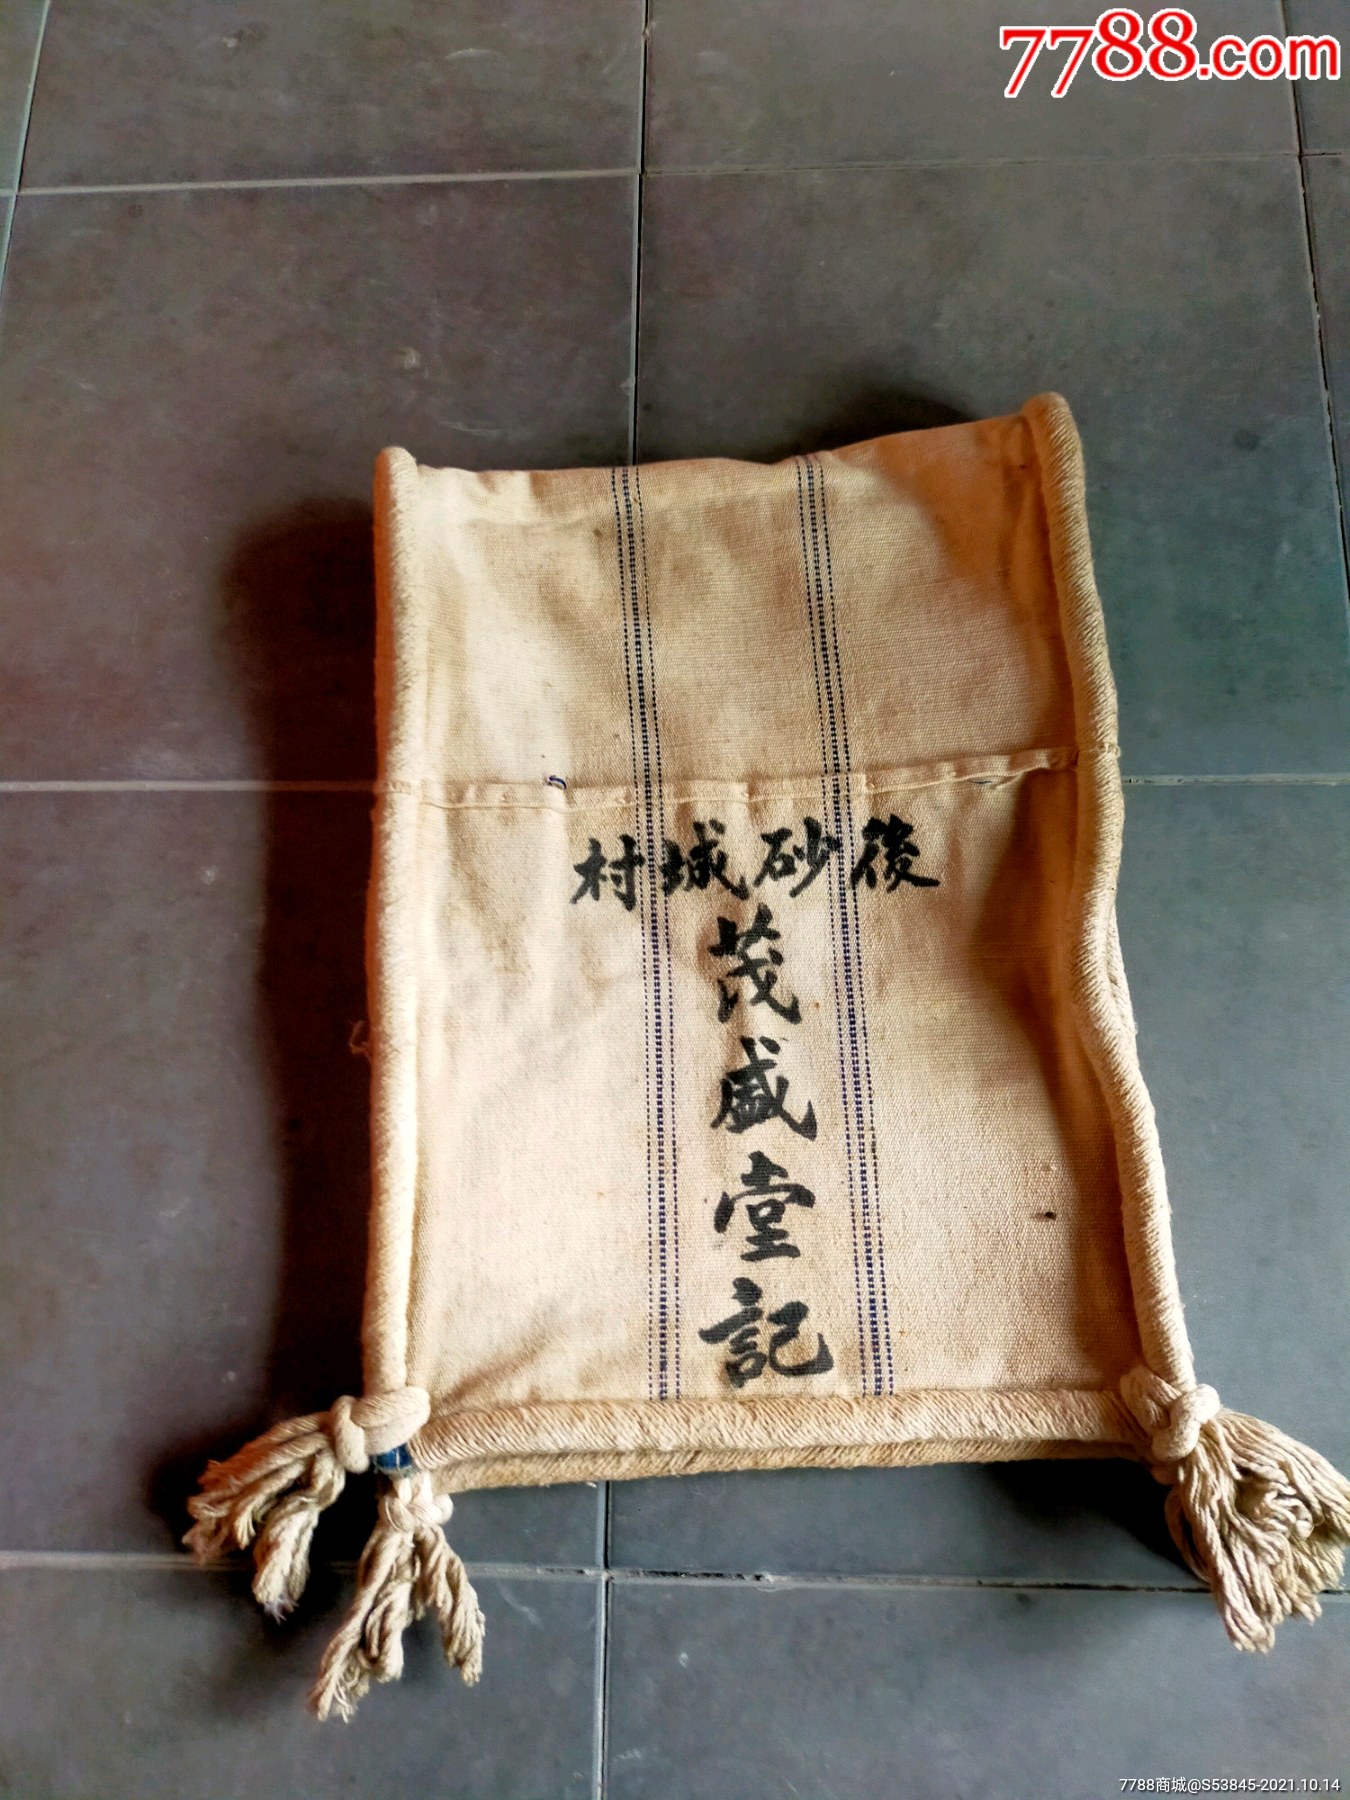 7788.com
後砂城村
茂盛堂記
7788商城@S53845-2021.10.14